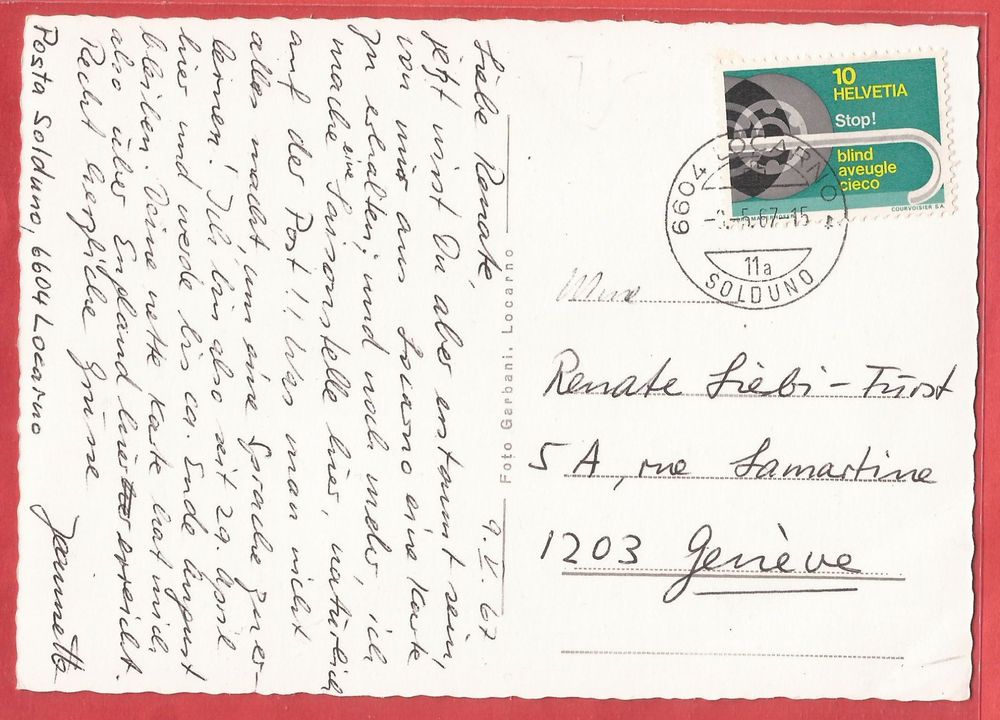 9. V. 67
Liebe Renate,
jetzt wirst Du aber erstaunt sein,
von mir aus Locarno eine Karte
zu erhalten; und noch mehr, ich
mache eine Saisonstelle hier, natürlich
auf der Post!! Was man nicht
alles macht, um eine Sprache zu er-
lernen! Ich bin also seit 29. April
hier und werde bis ca. Ende August
bleiben. Deine nette Karte hat mich
also über England hier erreicht.
Recht herzliche Grüsse
Jeannette
Posta Solduno, 6604 Locarno
Foto Garbani, Locarno
10
HELVETIA
Stop!
blind
aveugle
cieco
COURVOISIER S.A.
6604 LOCARNO
5.67-15
11a
SOLDUNO
Renate Siebi-Fürst
5A, rue Lamartine
1203 Genève